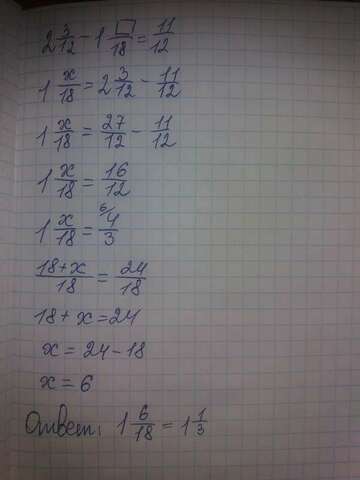 2 3/12 − 1 □/18 = 11/12
1 x/18 = 2 3/12 − 11/12
1 x/18 = 27/12 − 11/12
1 x/18 = 16/12
1 x/18 = 6/ 4/3
18+x/18 = 24/18
18 + x = 24
x = 24 − 18
x = 6
Ответ: 1 6/18 = 1 1/3